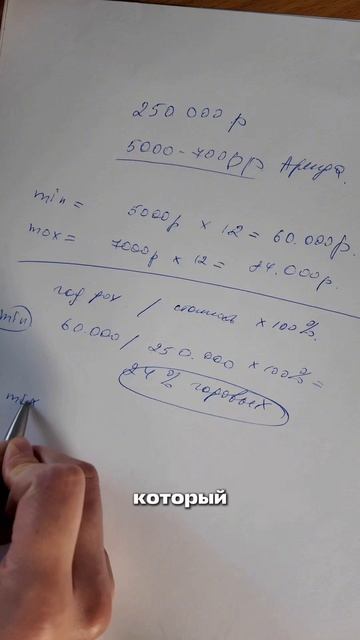 250 000 р
5000 - 7000р Аренда.
min = 5000р × 12 = 60.000р.
max = 7000р × 12 = 84.000р.
год дох / стоимость × 100%
min 60.000 / 250.000 × 100% =
24% годовых
max
который